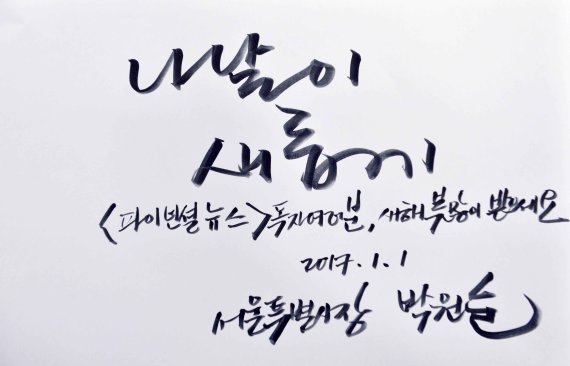 나날이
새롭게
<파이낸셜뉴스> 독자여러분, 새해 복 많이 받으세요
2017.1.1
서울특별시장 박원순